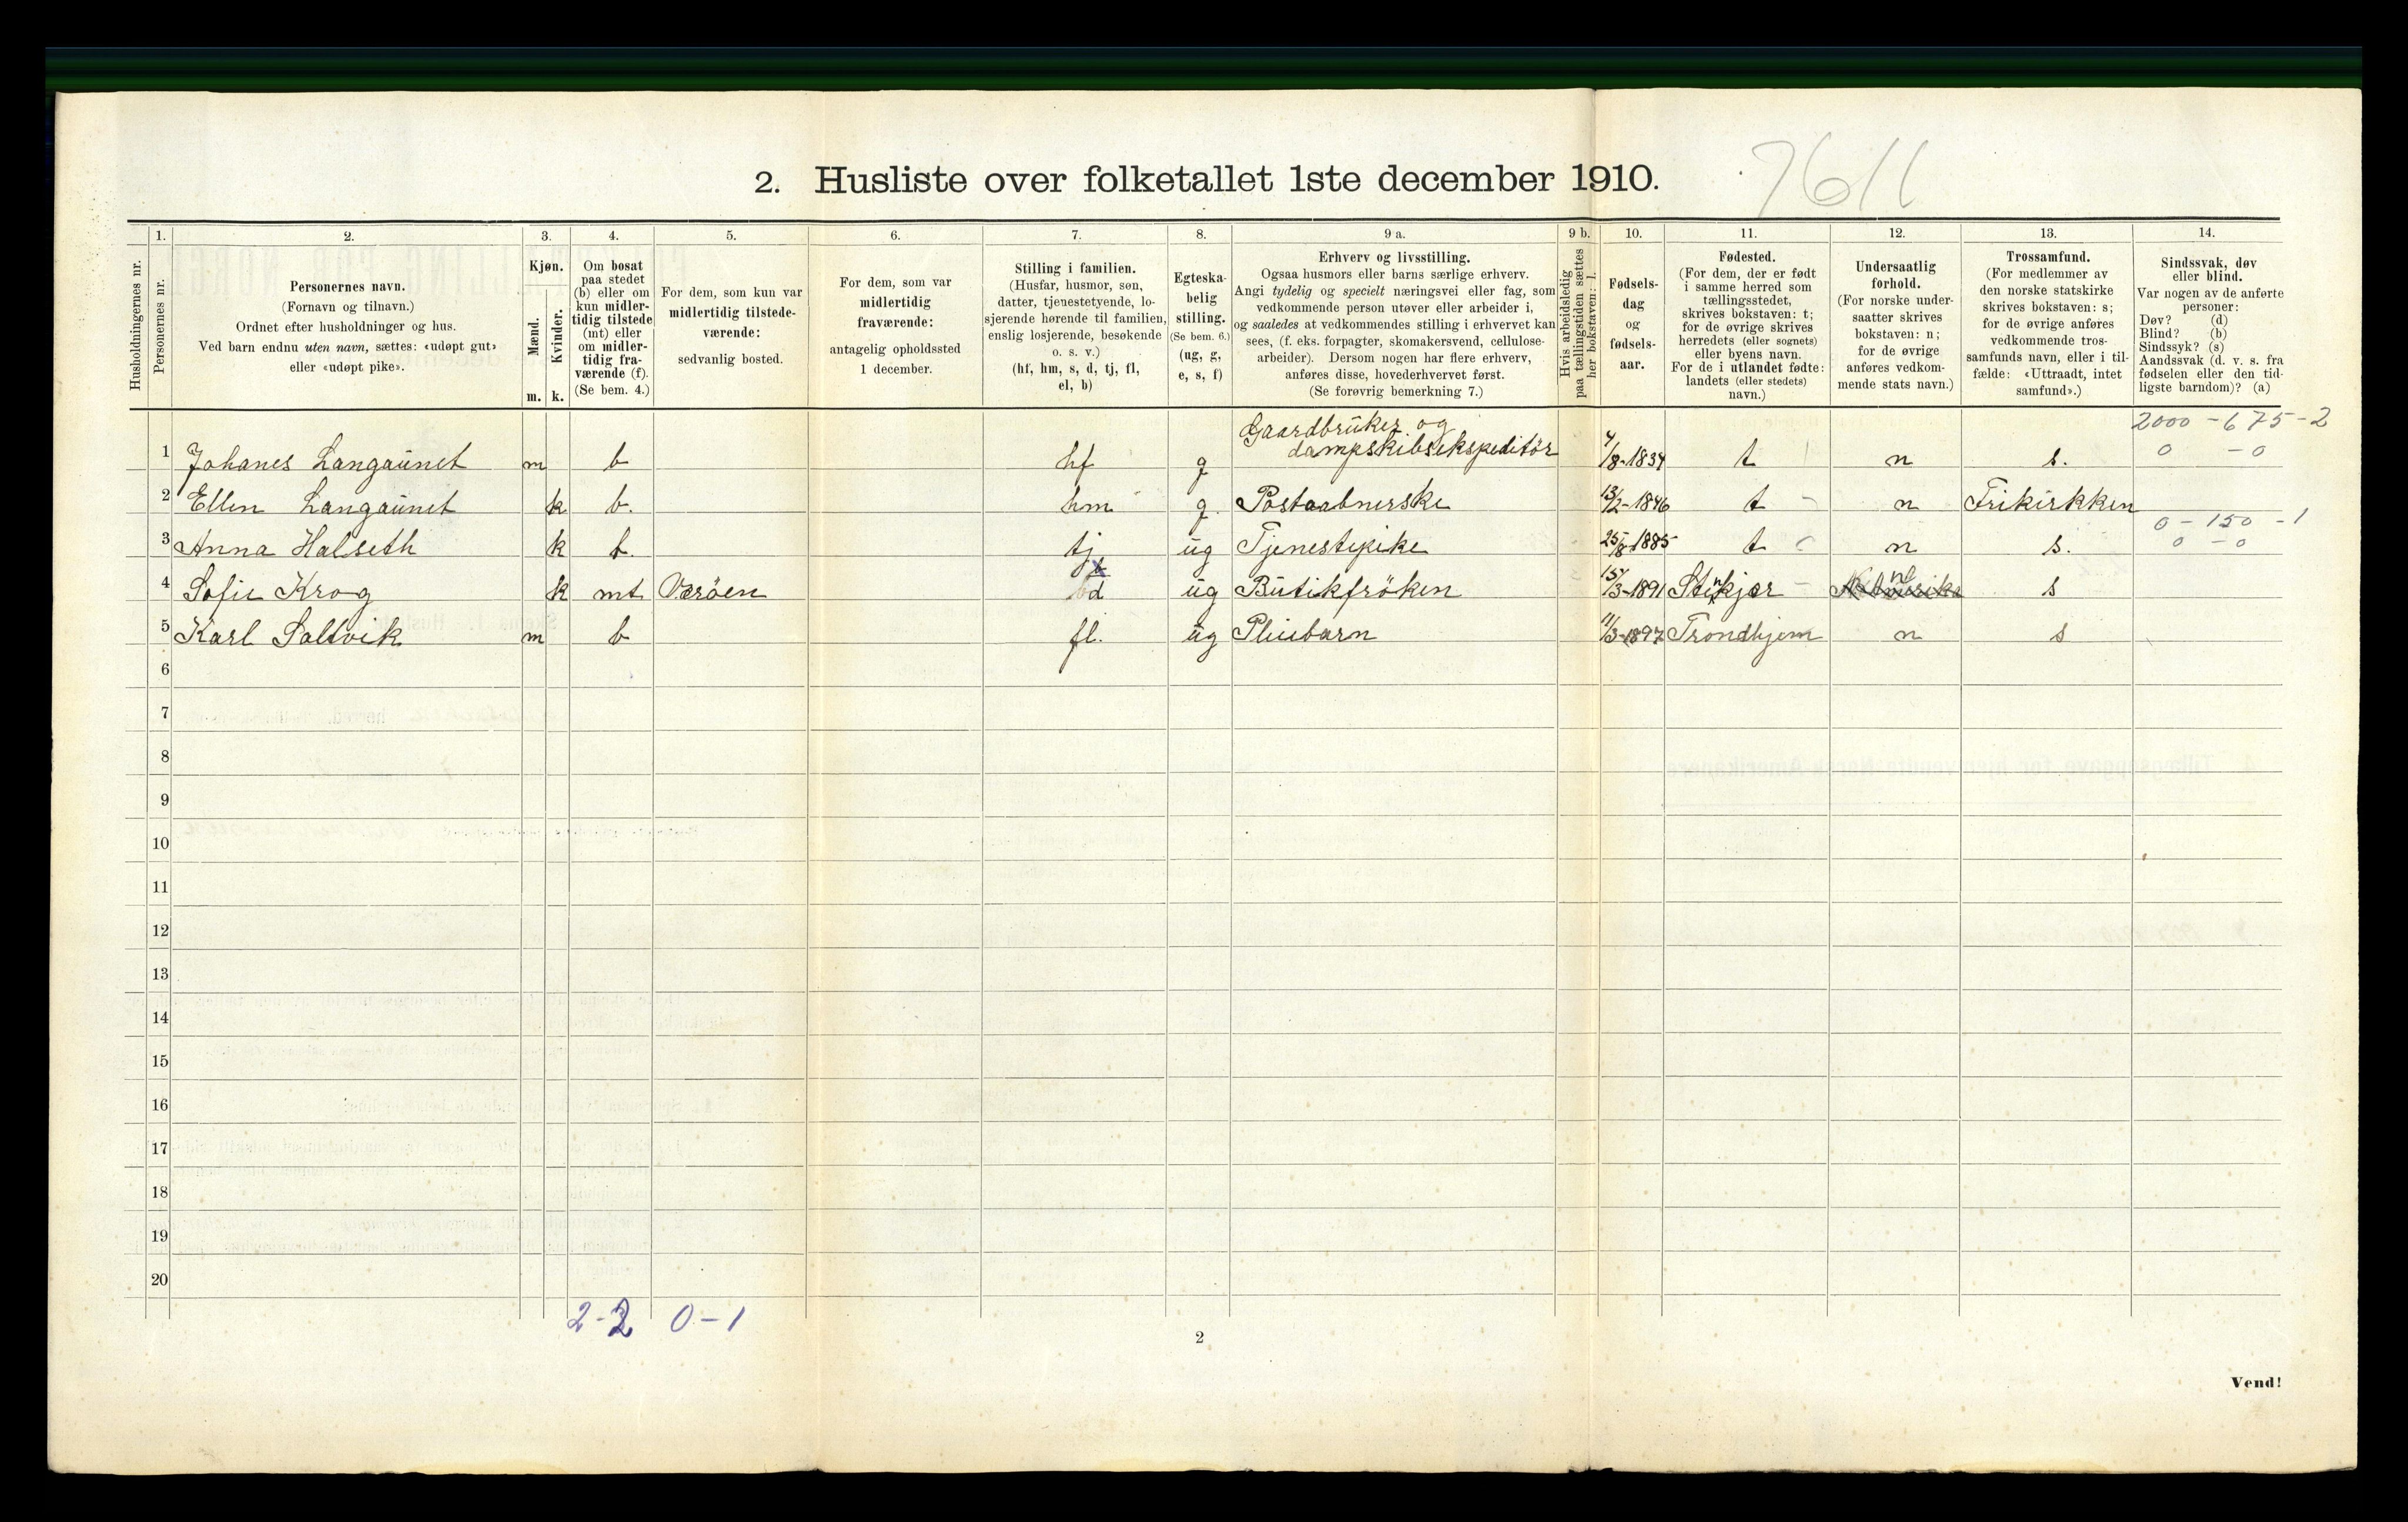 7611
2. Husliste over folketallet 1ste december 1910.
Husholdningernes nr.
1.
Personernes nr.
2.
Personernes navn.
(Fornavn og tilnavn.)
Ordnet efter husholdninger og hus.
Ved barn endnu uten navn, sættes: «udøpt gut»
eller «udøpt pike».
3.
Kjøn.
Mænd.
Kvinder.
m. k.
4.
Om bosat
paa stedet
(b) eller om
kun midler-
tidig tilstede
(mt) eller
om midler-
tidig fra-
værende (f).
(Se bem. 4.)
5.
For dem, som kun var
midlertidig tilstede-
værende:
sedvanlig bosted.
6.
For dem, som var
midlertidig
fraværende:
antagelig opholdssted
1 december.
7.
Stilling i familien.
(Husfar, husmor, søn,
datter, tjenestetyende, lo-
sjerende hørende til familien,
enslig losjerende, besøkende
o. s. v.)
(hf, hm, s, d, tj, fl,
el, b)
8.
Egteska-
belig
stilling.
(Se bem. 6.)
(ug, g,
e, s, f)
9 a.
Erhverv og livsstilling.
Ogsaa husmors eller barns særlige erhverv.
Angi tydelig og specielt næringsvei eller fag, som
vedkommende person utøver eller arbeider i,
og saaledes at vedkommendes stilling i erhvervet kan
sees, (f. eks. forpagter, skomakersvend, cellulose-
arbeider). Dersom nogen har flere erhverv,
anføres disse, hovederhvervet først.
(Se forøvrig bemerkning 7.)
9 b.
Hvis arbeidsledig
paa tællingstiden sættes
her bokstaven: l.
10.
Fødsels-
dag
og
fødsels-
aar.
11.
Fødested.
(For dem, der er født
i samme herred som
tællingsstedet,
skrives bokstaven: t;
for de øvrige skrives
herredets (eller sognets)
eller byens navn.
For de i utlandet fødte:
landets (eller stedets)
navn.)
12.
Undersaatlig
forhold.
(For norske under-
saatter skrives
bokstaven: n;
for de øvrige
anføres vedkom-
mende stats navn.)
13.
Trossamfund.
(For medlemmer av
den norske statskirke
skrives bokstaven: s;
for de øvrige anføres
vedkommende tros-
samfunds navn, eller i til-
fælde: «Uttraadt, intet
samfund».)
14.
Sindssvak, døv
eller blind.
Var nogen av de anførte
personer:
Døv? (d)
Blind? (b)
Sindssyk? (s)
Aandssvak (d. v. s. fra
fødselen eller den tid-
ligste barndom)? (a)
2000 - 675 - 2
0 - 0
1 Johanes Langaunet m b hf g Gaardbruker og
dampskibsekspeditör 4/8-1834 t n s.
2 Ellen Langaunet k b. hm g. Postaabnerske 13/2-1846 t n Frikirkken
0 - 150 - 1
0 - 0
3 Anna Halseth k b. tj. ug Tjenestepike 25/8-1885 t n s.
4 Sofie Krog k mt Væröen b d ug Butikfröken 15/3-1891 Stenkjær n s
5 Karl Saltvik m b fl. ug Pleiebarn 11/3-1897 Trondhjem n s
6
7
8
9
10
11
12
13
14
15
16
17
18
19
20
2-2 0-1
2
Vend!